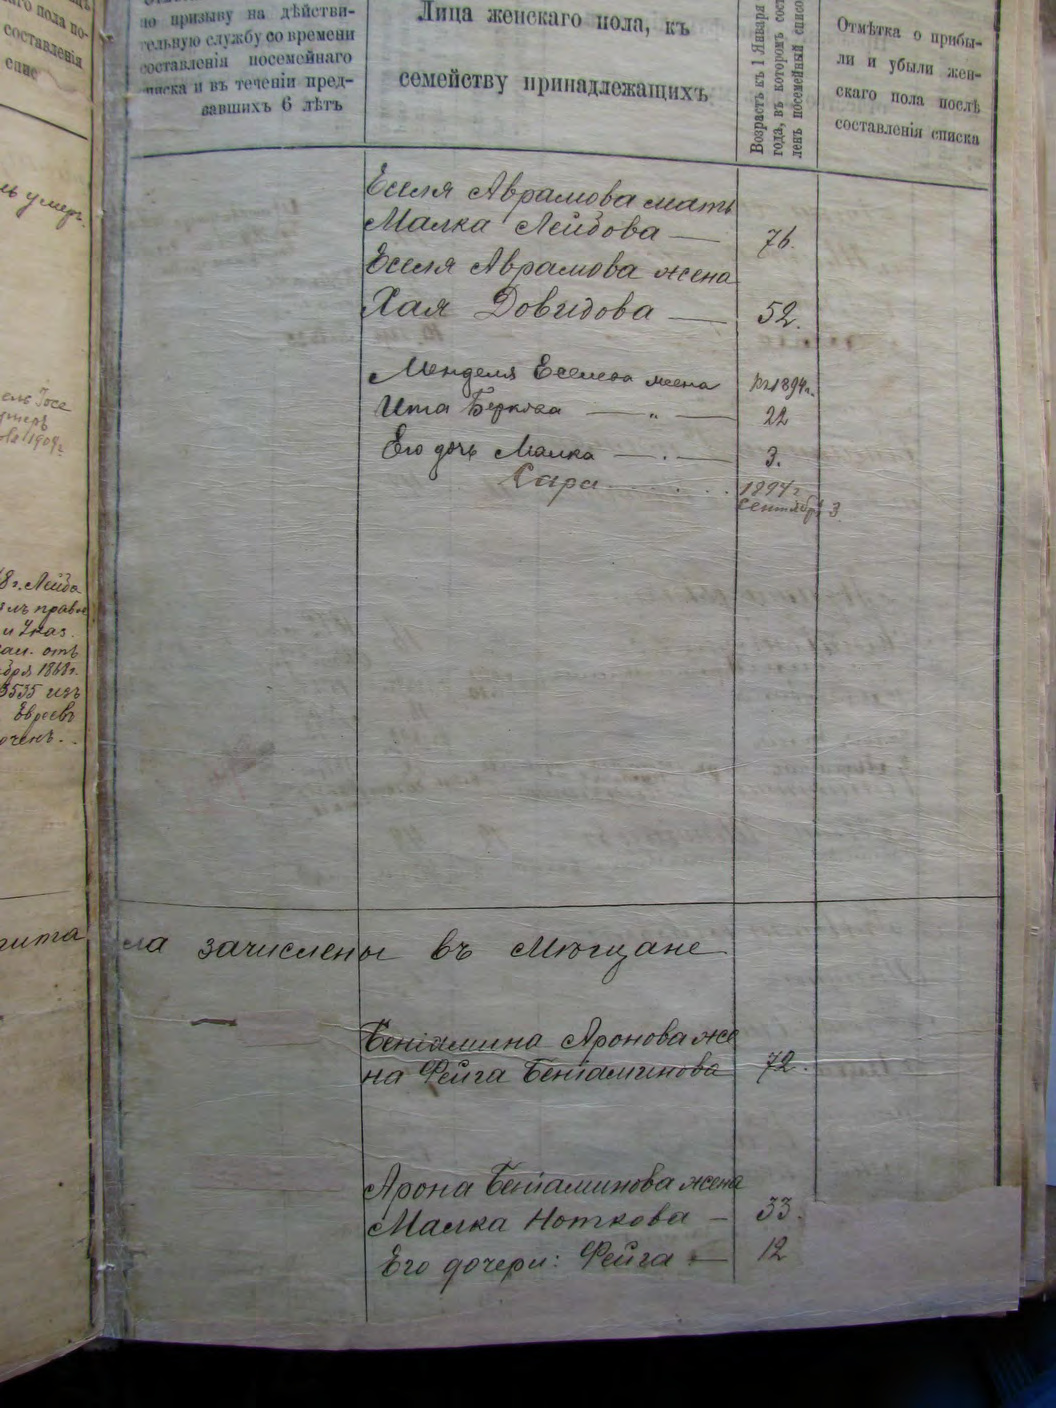 по призыву на дѣйстви-
тельную службу со времени
составленія посемейнаго
списка и въ теченіи пред-
вавшихъ 6 лѣтъ
Лица женскаго пола, къ
семейству принадлежащихъ
Возрастъ къ 1 Января
года, въ которомъ сост
ленъ посемейный списо
Отмѣтка о прибы-
ли и убыли жен-
скаго пола послѣ
составленія списка
составленія
Еселя Аврамова мать
Малка Лейбова — 76.
Еселя Аврамова жена
Хая Довидова — 52.
Менделя Еселева жена къ 1894г.
Ита Беркова — „ — 22
Его дочь Малка — „ — 3.
Сара 1894 г.
Сентября 3.
умеръ.
1909г.
8 г. Лейба
правл
и Указ.
отъ
бря 1868г.
3535 изъ
Евреевъ
ла зачислены въ Мѣщане
Беніямина Аронова же
на Фейга Беніаминова 72.
Арона Беніаминова жена
Малка Ноткова — 33.
Его дочери: Фейга — 12